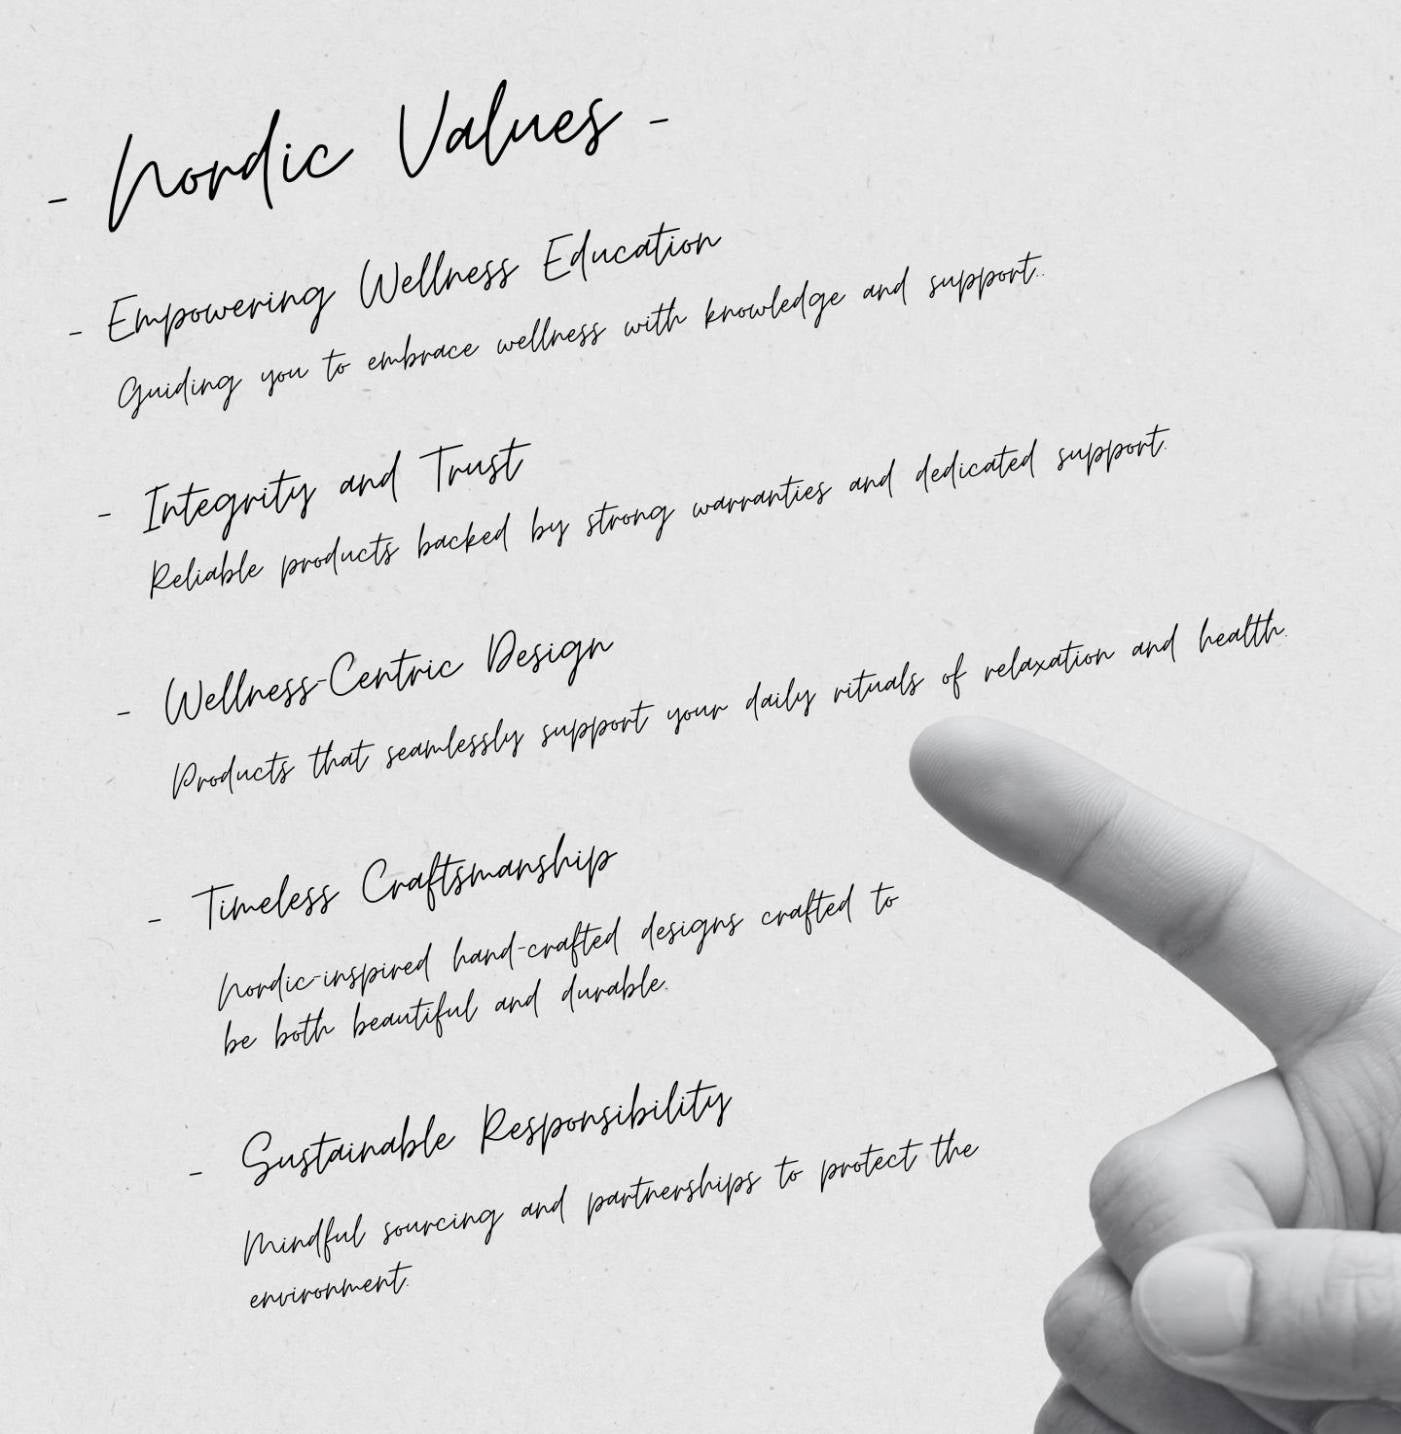 - Nordic Values -
- Empowering Wellness Education
Guiding you to embrace wellness with knowledge and support..
- Integrity and Trust
Reliable products backed by strong warranties and dedicated support.
- Wellness-Centric Design
Products that seamlessly support your daily rituals of relaxation and health.
- Timeless Craftsmanship
Nordic-inspired hand-crafted designs crafted to
be both beautiful and durable.
- Sustainable Responsibility
Mindful sourcing and partnerships to protect the
environment.